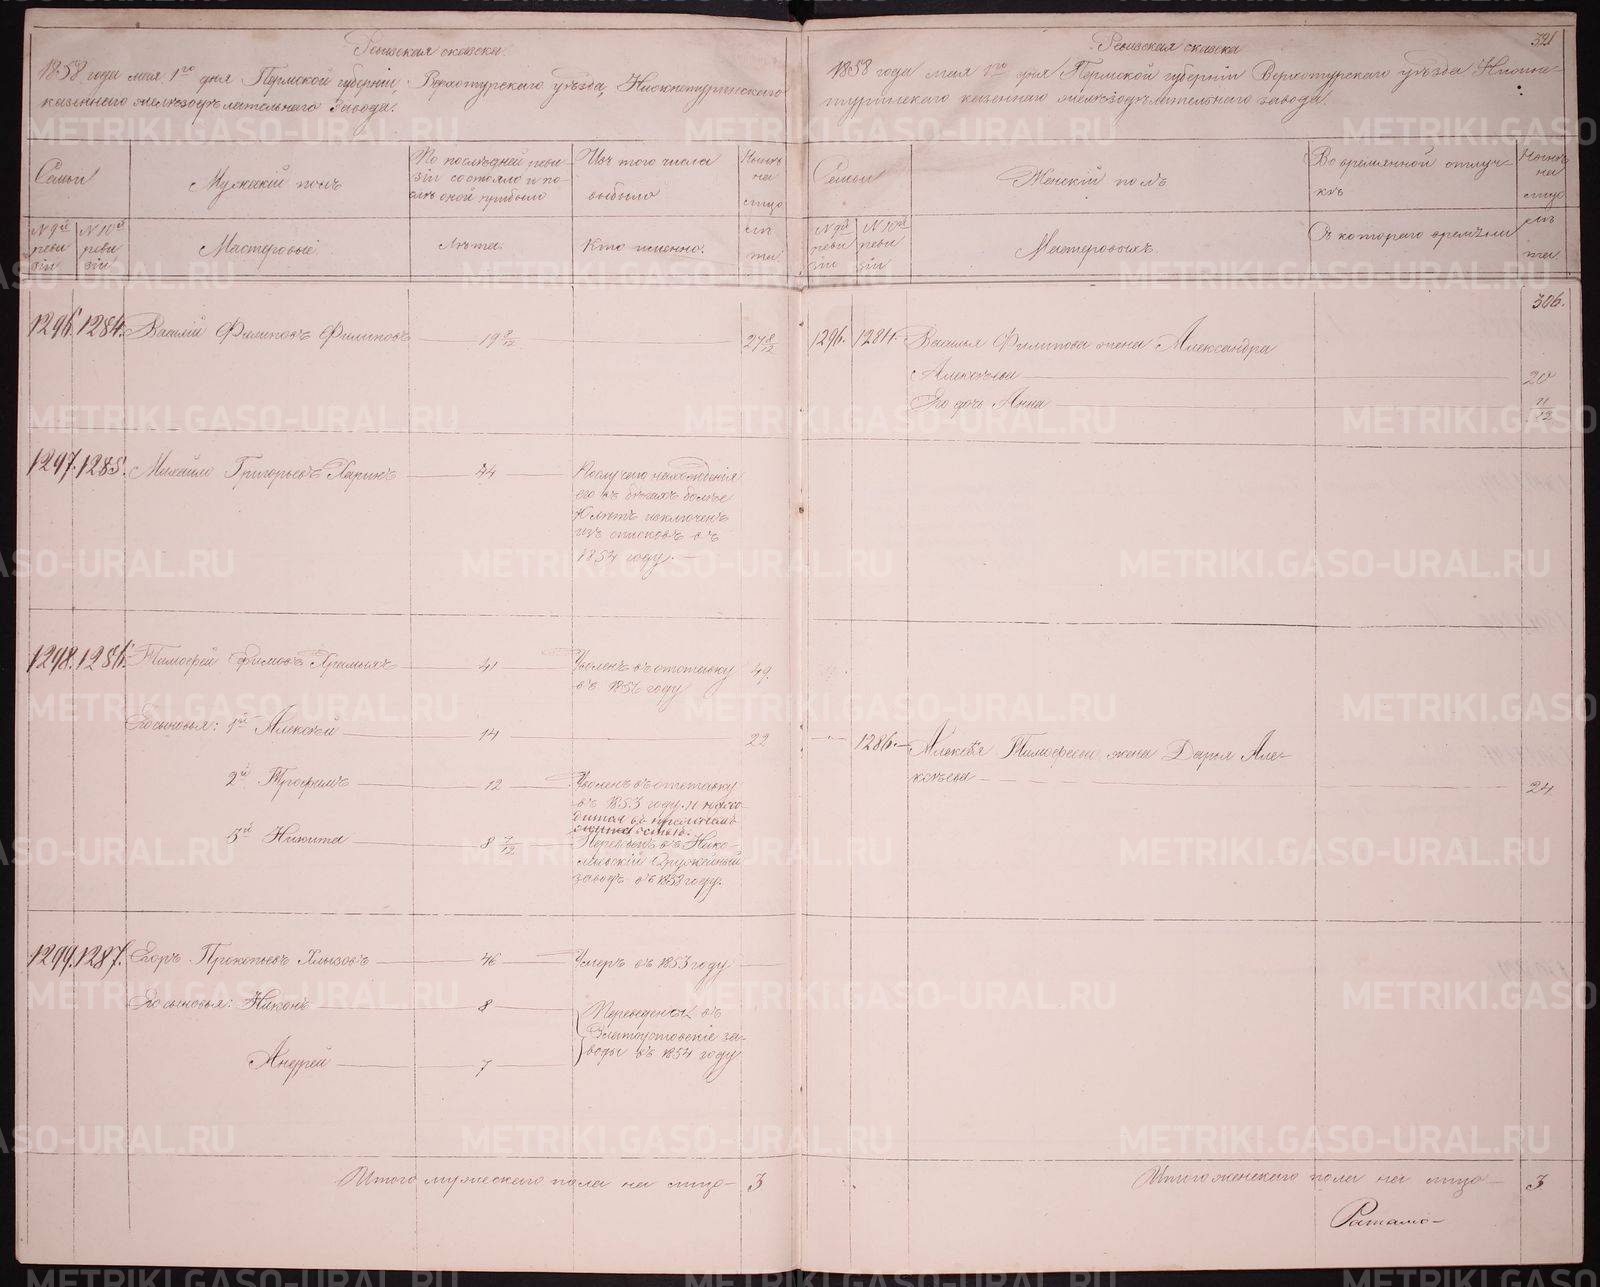 Ревизская сказка
1858 года мая 1го дня Пермской губернии, Верхотурского уѣзда, Нижнетуринскаго
казеннаго желѣзодѣлательнаго завода.
Семьи
Мужеский полъ
По послѣдней реви-
зіи состояло и по-
слѣ оной прибыло
Изъ того числа
выбыло
Нынѣ
на
лицо
№ 9й
реви
зіи
№ 10й
реви
зіи
Мастеровые
Лѣта.
Кто именно.
лѣ
та
1296. 1284. Василій Филиповъ Филиповъ 19 8/12 27 8/12
1297. 1285. Михайло Григорьевъ Харинъ 44
По случаю нахожденія
его въ бѣгахъ болѣе
10 лѣтъ исключенъ
изъ списковъ въ
1854 году.
1298. 1286. Тимофей Ефимовъ 41
Уволенъ въ отставку 49.
въ 1856 году
Его сыновья: 1й Алексѣй 14 22
2й Трофимъ 12
Уволенъ въ отставку
въ 1853 году и нахо-
дится въ
3й Никита 8 7/12
Переведенъ въ Нико-
лаевскій Оружейный
заводъ въ 1853 году.
1299. 1287. Егоръ Прокопьевъ Хлызовъ 46 Умеръ въ 1853 году
Его сыновья: Никонъ 8
Андрей 7
Переведены въ
Златоустовские за-
воды въ 1854 году
Итого мужескаго пола на лицо 3
321
Ревизская сказка
1858 года мая 1го дня Пермской губерніи Верхотурскаго уѣзда Нижне-
туринскаго казеннаго желѣзодѣлательнаго завода.
Семьи
Женскій полъ
Во временной отлуч-
кѣ
Нынѣ
на
лицо
№ 9й
реви
зіи
№ 10й
реви
зіи
Мастеровыхъ.
Съ котораго времени
лѣ
та
306.
1296. 1284. Василья Филипова жена Александра
Алексѣева 20
Его дочь Анна 11/12
1286. Алексѣя Тимофеева жена Дарья Але-
ксѣева 24
Итого женскаго пола на лицо 3
METRIKI.GASO-URAL.RU